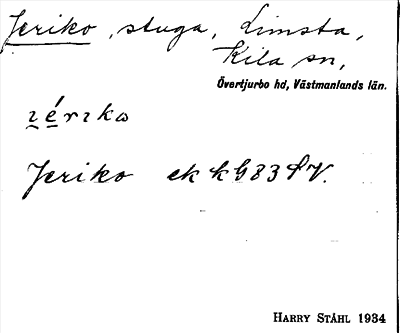 Jeriko, stuga, Limsta,
Kila sn,
Övertjurbo hd, Västmanlands län.
Jeriko ek k G 83
HARRY STÅHL 1934